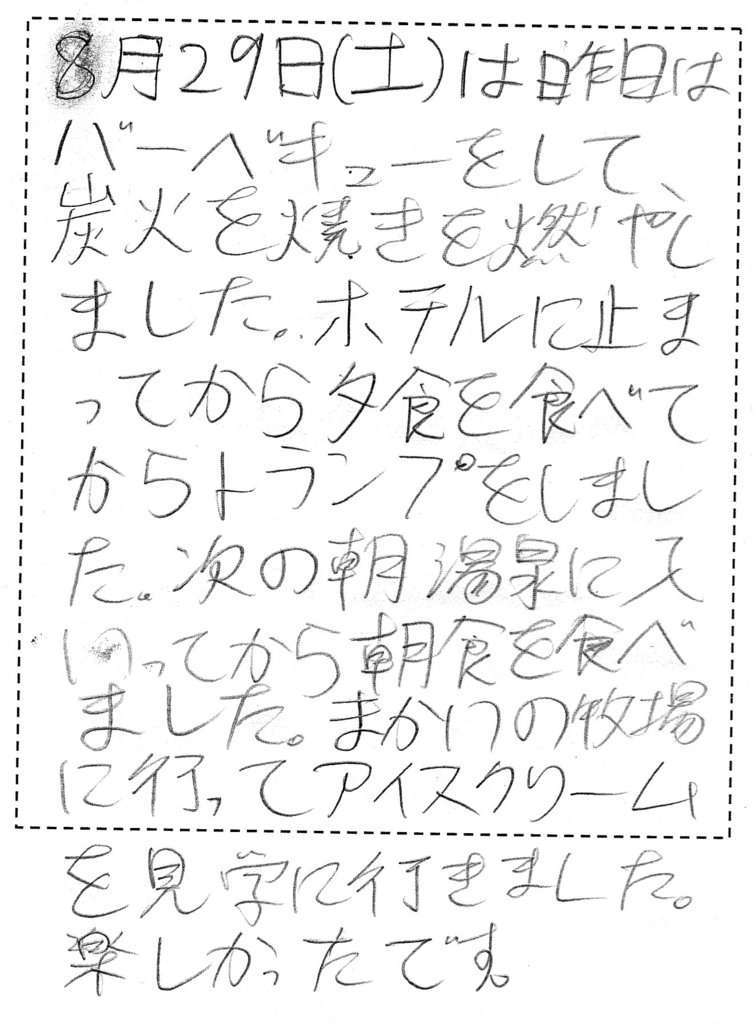 8月29日(土)は昨日は
バーベキューをして、
炭火を焼きを燃やし
ました。ホテルに止ま
ってから夕食を食べて
からトランプをしまし
た。次の朝湯泉に入
ってから朝食を食べ
ました。まかいの牧場
に行ってアイスクリーム
を見学に行きました。
楽しかったです。